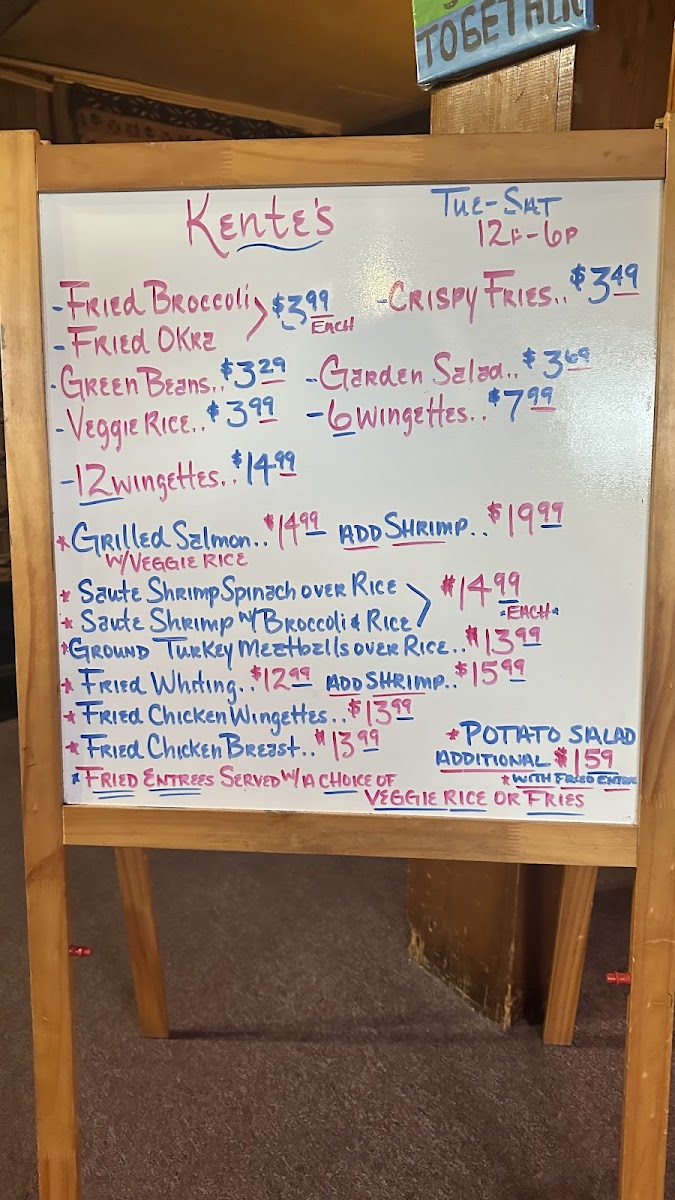 TOGETHER
Kente's
TUE-SAT
12P-6P
-FRIED BROCCOLI
-FRIED OKRA
$3.99
EACH
-CRISPY FRIES.. $3.49
-GREEN BEANS.. $3.29
-GARDEN SALAD.. $3.69
-VEGGIE RICE.. $3.99
-6 WINGETTES.. $7.99
-12 WINGETTES.. $14.99
*GRILLED SALMON.. $14.99 ADD SHRIMP.. $19.99
W/VEGGIE RICE
* SAUTE SHRIMP SPINACH OVER RICE
* SAUTE SHRIMP W/BROCCOLI & RICE
$14.99
*EACH*
*GROUND TURKEY MEATBALLS OVER RICE.. $13.99
* FRIED WHITING.. $12.99 ADD SHRIMP.. $15.99
* FRIED CHICKEN WINGETTES.. $13.99
* FRIED CHICKEN BREAST.. $13.99
*POTATO SALAD
ADDITIONAL $1.59
*WITH FRIED ENTREE
*FRIED ENTREES SERVED W/A CHOICE OF
VEGGIE RICE OR FRIES